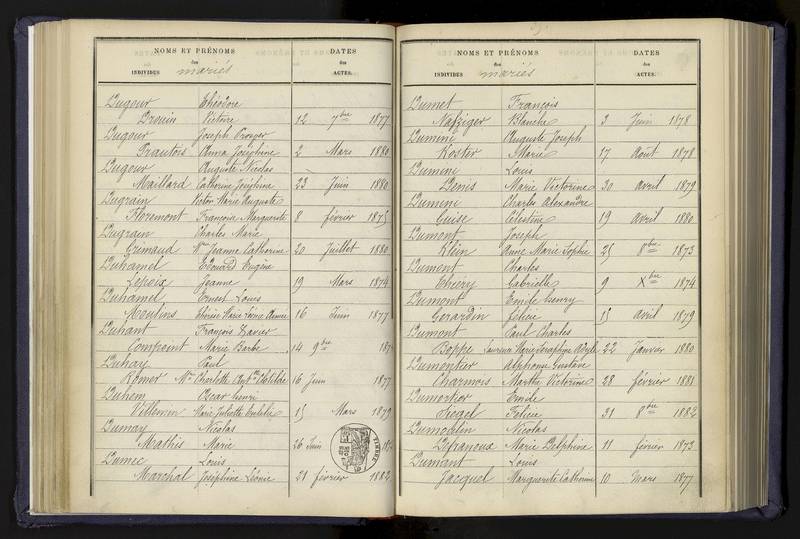 NOMS ET PRÉNOMS DATES
des des
INDIVIDUS mariés ACTES.
Dugour Théodore
Drouin Victoire 12 7bre 1877
Dugour Joseph Prosper
Prautois Anna Joséphine 2 Mars 1880
Dugour Auguste Nicolas
Maillard Catherine Joséphine 23 Juin 1880
Dugrain Victor Marie Auguste
Floremont Françoise Marguerite 8 février 1875
Dugrain Charles Marie
Grimaud Jeanne Catherine 20 Juillet 1880
Duhamel Edouard Eugène
Lepoix Jeanne 19 Mars 1874
Duhamel Ernest Louis
Moulins Marie 16 Juin 1877
Duhant François Xavier
Compoint Marie Barbe 14 9bre
Duhay Paul
Romer Charlotte Clotilde 16 Juin 1877
Duhem Oscar henri
Villemin Marie Juliette 15 Mars 1879
Dumay Nicolas
Mathis Marie 26 Juin
Dumec Louis
Marchal Joséphine Léonie 21 février 1882
NOMS ET PRÉNOMS DATES
des des
INDIVIDUS mariés ACTES.
Dumet François
Nafziger Blanche 3 Juin 1878
Dumini Auguste Joseph
Koster Marie 17 Août 1878
Dumini Louis
Denis Marie Victorine 30 avril 1879
Dumini Charles Alexandre
Guise Célestine 19 Avril 1880
Dumont Joseph
Klein Anne Marie Sophie 25 8bre 1873
Dumont Charles
Thiéry Gabrielle 9 Xbre 1874
Dumont Emile henry
Gerardin félicie 15 avril 1879
Dumont Paul Charles
Boppe Marie Séraphine Adèle 22 Janvier 1880
Dumontier Alphonse Gustave
Charmois Marthe Victorine 28 février 1881
Dumortier Emile
Siegel Félicie 31 8bre 1882
Dumoulin Nicolas
Defranoux Marie Delphine 11 février 1873
Dumant Louis
Jacquel Marguerite Catherine 10 Mars 1877